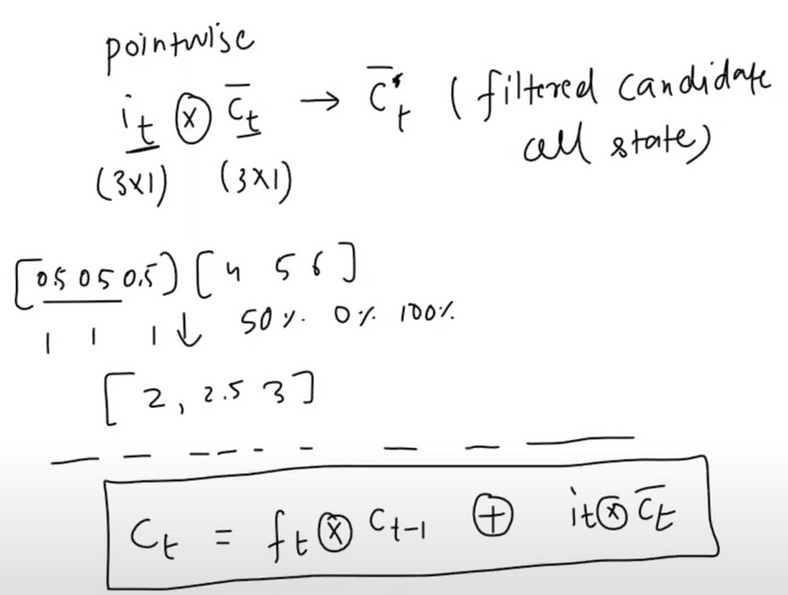 pointwise
i_t ⊗ c̄_t → c̄'_t ( filtered candidate
cell state)
(3x1) (3x1)
[0.5 0.5 0.5] [4 5 6]
1 1 1 ↓ 50% 0% 100%
[2, 2.5 3]
C_t = f_t ⊗ C_t-1 ⊕ i_t ⊗ c̄_t